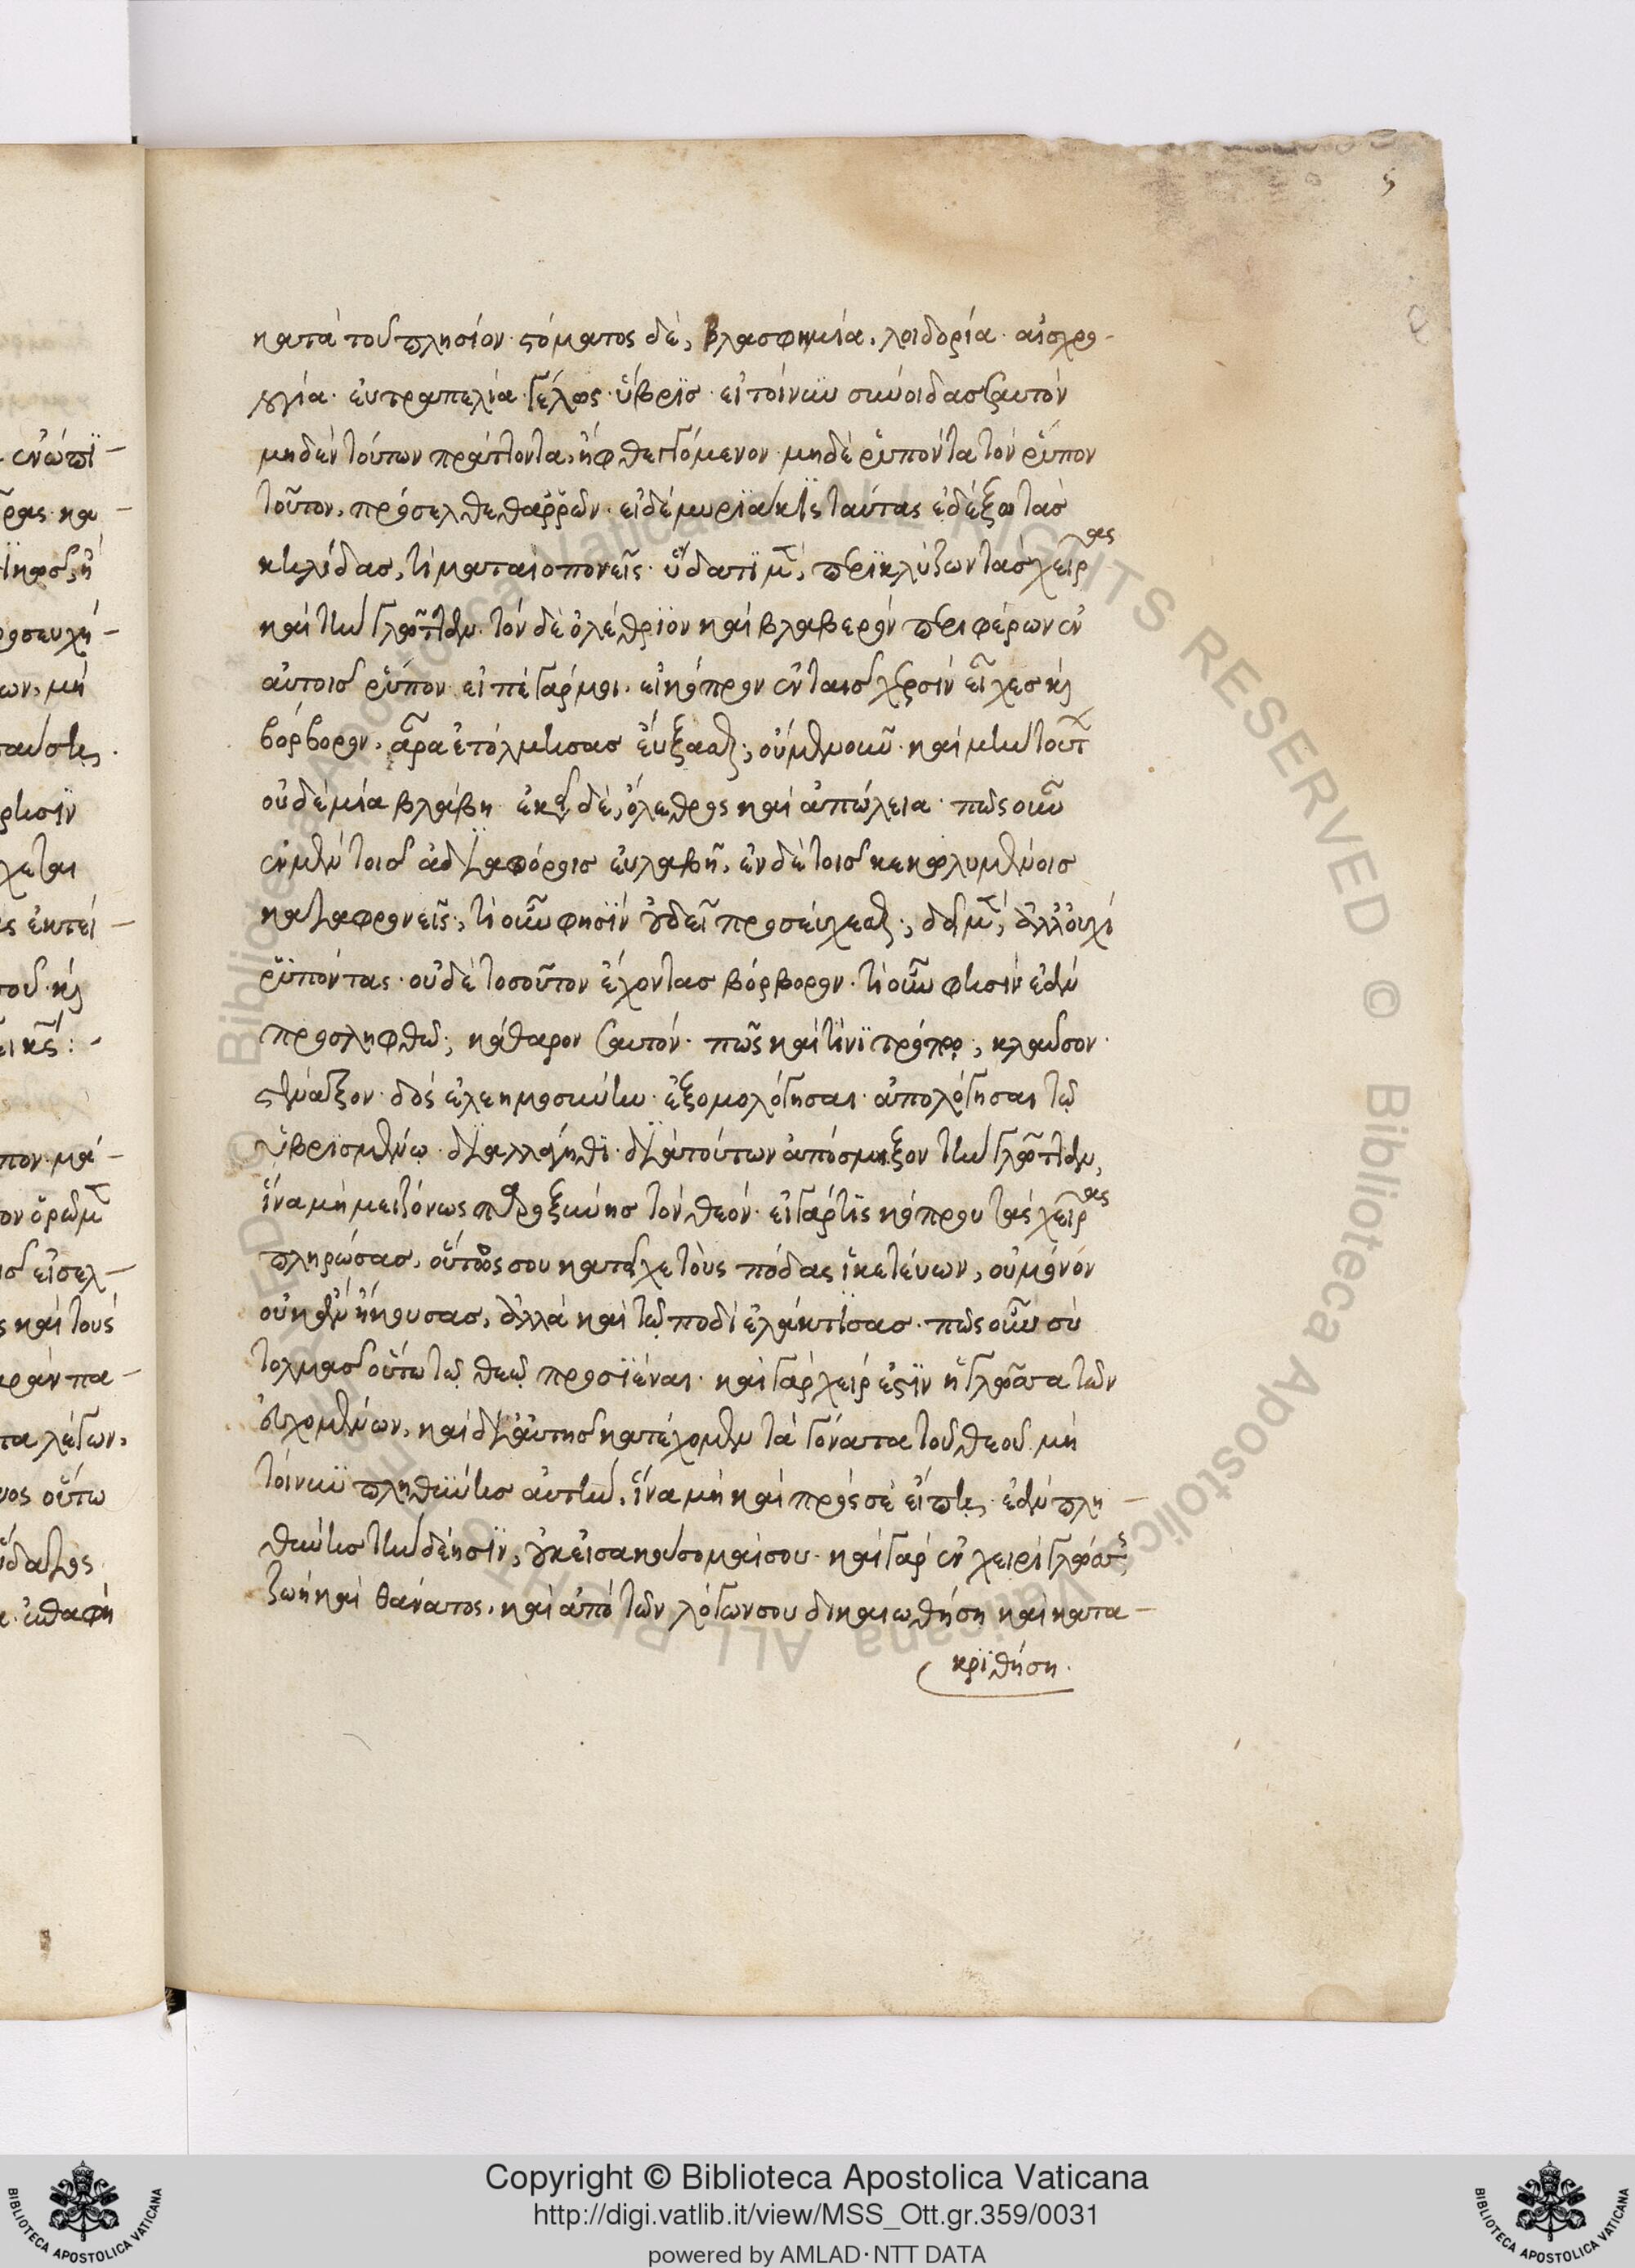 κατὰ τοῦ πλησίον· στόματος δὲ, βλασφημία, λοιδορία· αἰσχρο-
λογία· εὐτραπελία· γέλως· ὕβρϊσ· εἰ τοίνυν σὺ οἶδας ἑαυτὸν
μηδὲν τούτων πράττοντα, ἢ φθεγγόμενον· μηδὲ ῥυποῦντα τὸν ῥύπον
τοῦτον, πρόσελθε θαῤῥῶν· εἰ δὲ μυρϊάκϊς ταύτας ἐδέξω τὰσ
κηλίδασ, τί ματαιοπονεῖς· ὕδατϊ μὲν περϊκλύζων τὰσ χεῖρας
καὶ τὴν γλῶτταν· τὸν δὲ ὀλέθρϊον καὶ βλαβερὸν περιφέρων ἐν
αὐτοῖσ ῥύπον· εἰπὲ γάρ μοι· εἰ κόπρον ἐν ταῖσ χερσὶν εἶχεσ καὶ
βόρβορον, ἆρα ἐτόλμησασ εὔξασθαι; οὐμενοῦν· καὶ μὴν τοῦτο
οὐδεμία βλάβη· ἐκεῖνο δὲ, ὄλεθρος καὶ ἀπώλεια· πῶς οὖν
ἐν μὲν τοῖσ ἀδιαφόροισ εὐλαβῆ, ἐν δὲ τοῖσ κεκωλυμένοισ
καταφρονεῖς; τί οὖν φησῒν οὐ δεῖ προσεύχεσθαι; δεῖ μὲν, ἀλλ' οὐχὶ
ῥϋποῦντας· οὐδὲ τοσοῦτον ἔχοντασ βόρβορον· τί οὖν φησὶν ἐὰν
προσληφθῶ; κάθαρον σαυτόν· πῶς καὶ τίνϊ τρόπῳ; κλαῦσον·
στέναξον· δὸς ἐλεημοσύνην· ἐξομολόγησαι· ἀπολόγησαι τῷ
ὑβρϊσμένῳ· διαλλάγηθϊ· διὰ τούτων ἀπόσμηξον τὴν γλῶτταν,
ἵνα μὴ μειζόνως παροξύνῃσ τὸν θεόν· εἰ γάρ τϊς κόπρου τὰς χεῖρας
πληρώσασ, οὕτως σου κατεῖχε τοὺς πόδας ἱκετεύων, οὐ μόνον
οὐκ ἂν ἤκουσασ, ἀλλὰ καὶ τῷ ποδὶ ἐλάκτϊσασ· πῶς οὖν σὺ
τολμᾶσ οὕτω τῷ θεῷ προσϊέναι· καὶ γὰρ χείρ ἐστϊν ἡ γλῶττα τῶν
εὐχομένων, καὶ δι' αὐτῆσ κατέχομεν τὰ γόνατα τοῦ θεοῦ μὴ
τοίνυν πληθύνῃσ αὐτὴν, ἵνα μὴ καὶ πρὸς σὲ εἴπῃ, ἐὰν πλη-
θύνῃσ τὴν δέησϊν, οὐκ εἰσακούσομαί σου· καὶ γὰρ ἐν χειρὶ γλώσσης
ζωὴ καὶ θάνατος, καὶ ἀπὸ τῶν λόγων σου δικαιωθήσῃ καὶ κατα-
κρϊθήσῃ.
Copyright © Biblioteca Apostolica Vaticana
http://digi.vatlib.it/view/MSS_Ott.gr.359/0031
powered by AMLAD·NTT DATA